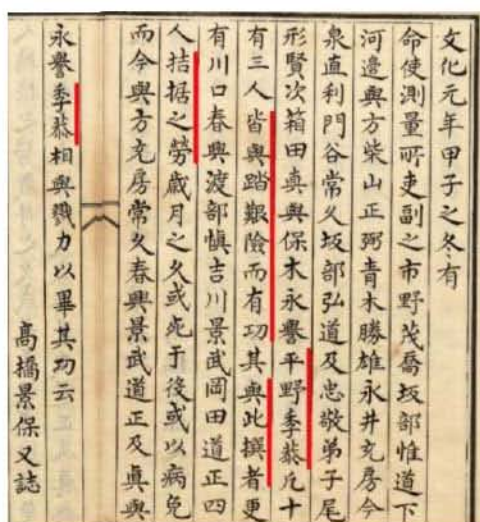 文化元年甲子之冬有
命使測量所吏副之市野茂喬坂部惟道下
河邊與方柴山正弼青木勝雄永井充房今
泉直利門谷常久坂部弘道及忠敬弟子尾
形賢次箱田真與保木永譽平野季恭凡十
有三人皆與踏艱險而有功其與此撰者更
有川口春興渡部慎吉川景武岡田道正四
人拮据之勞歲月之久或死于後或以病免
而今與方充房常久春興景武道正及真與
永譽季恭相與戮力以畢其功云
高橋景保又誌